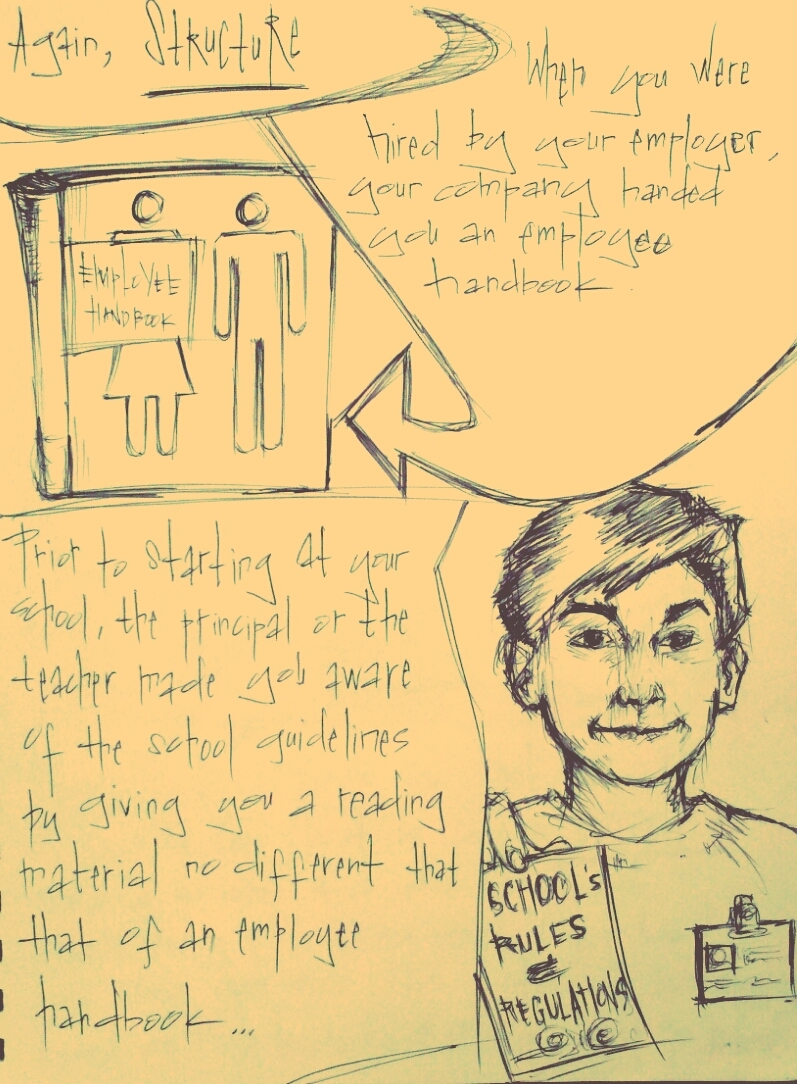 Again, STRUCTURE
When you were
hired by your employer,
your company handed
you an employee
handbook.
EMPLOYEE
HANDBOOK
Prior to starting at your
school, the principal or the
teacher made you aware
of the school guidelines
by giving you a reading
material no different that
that of an employee
handbook...
SCHOOL's
RULES
&
REGULATIONS